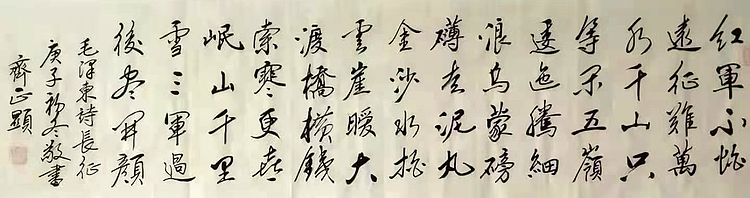 紅軍不怕
遠征難萬
水千山只
等闲五嶺
逶迤騰細
浪烏蒙磅
礴走泥丸
金沙水拍
雲崖暖大
渡橋横鐵
索寒更喜
岷山千里
雪三軍過
後尽開顔
毛泽東詩長征
庚子初冬敬書
齊正顯